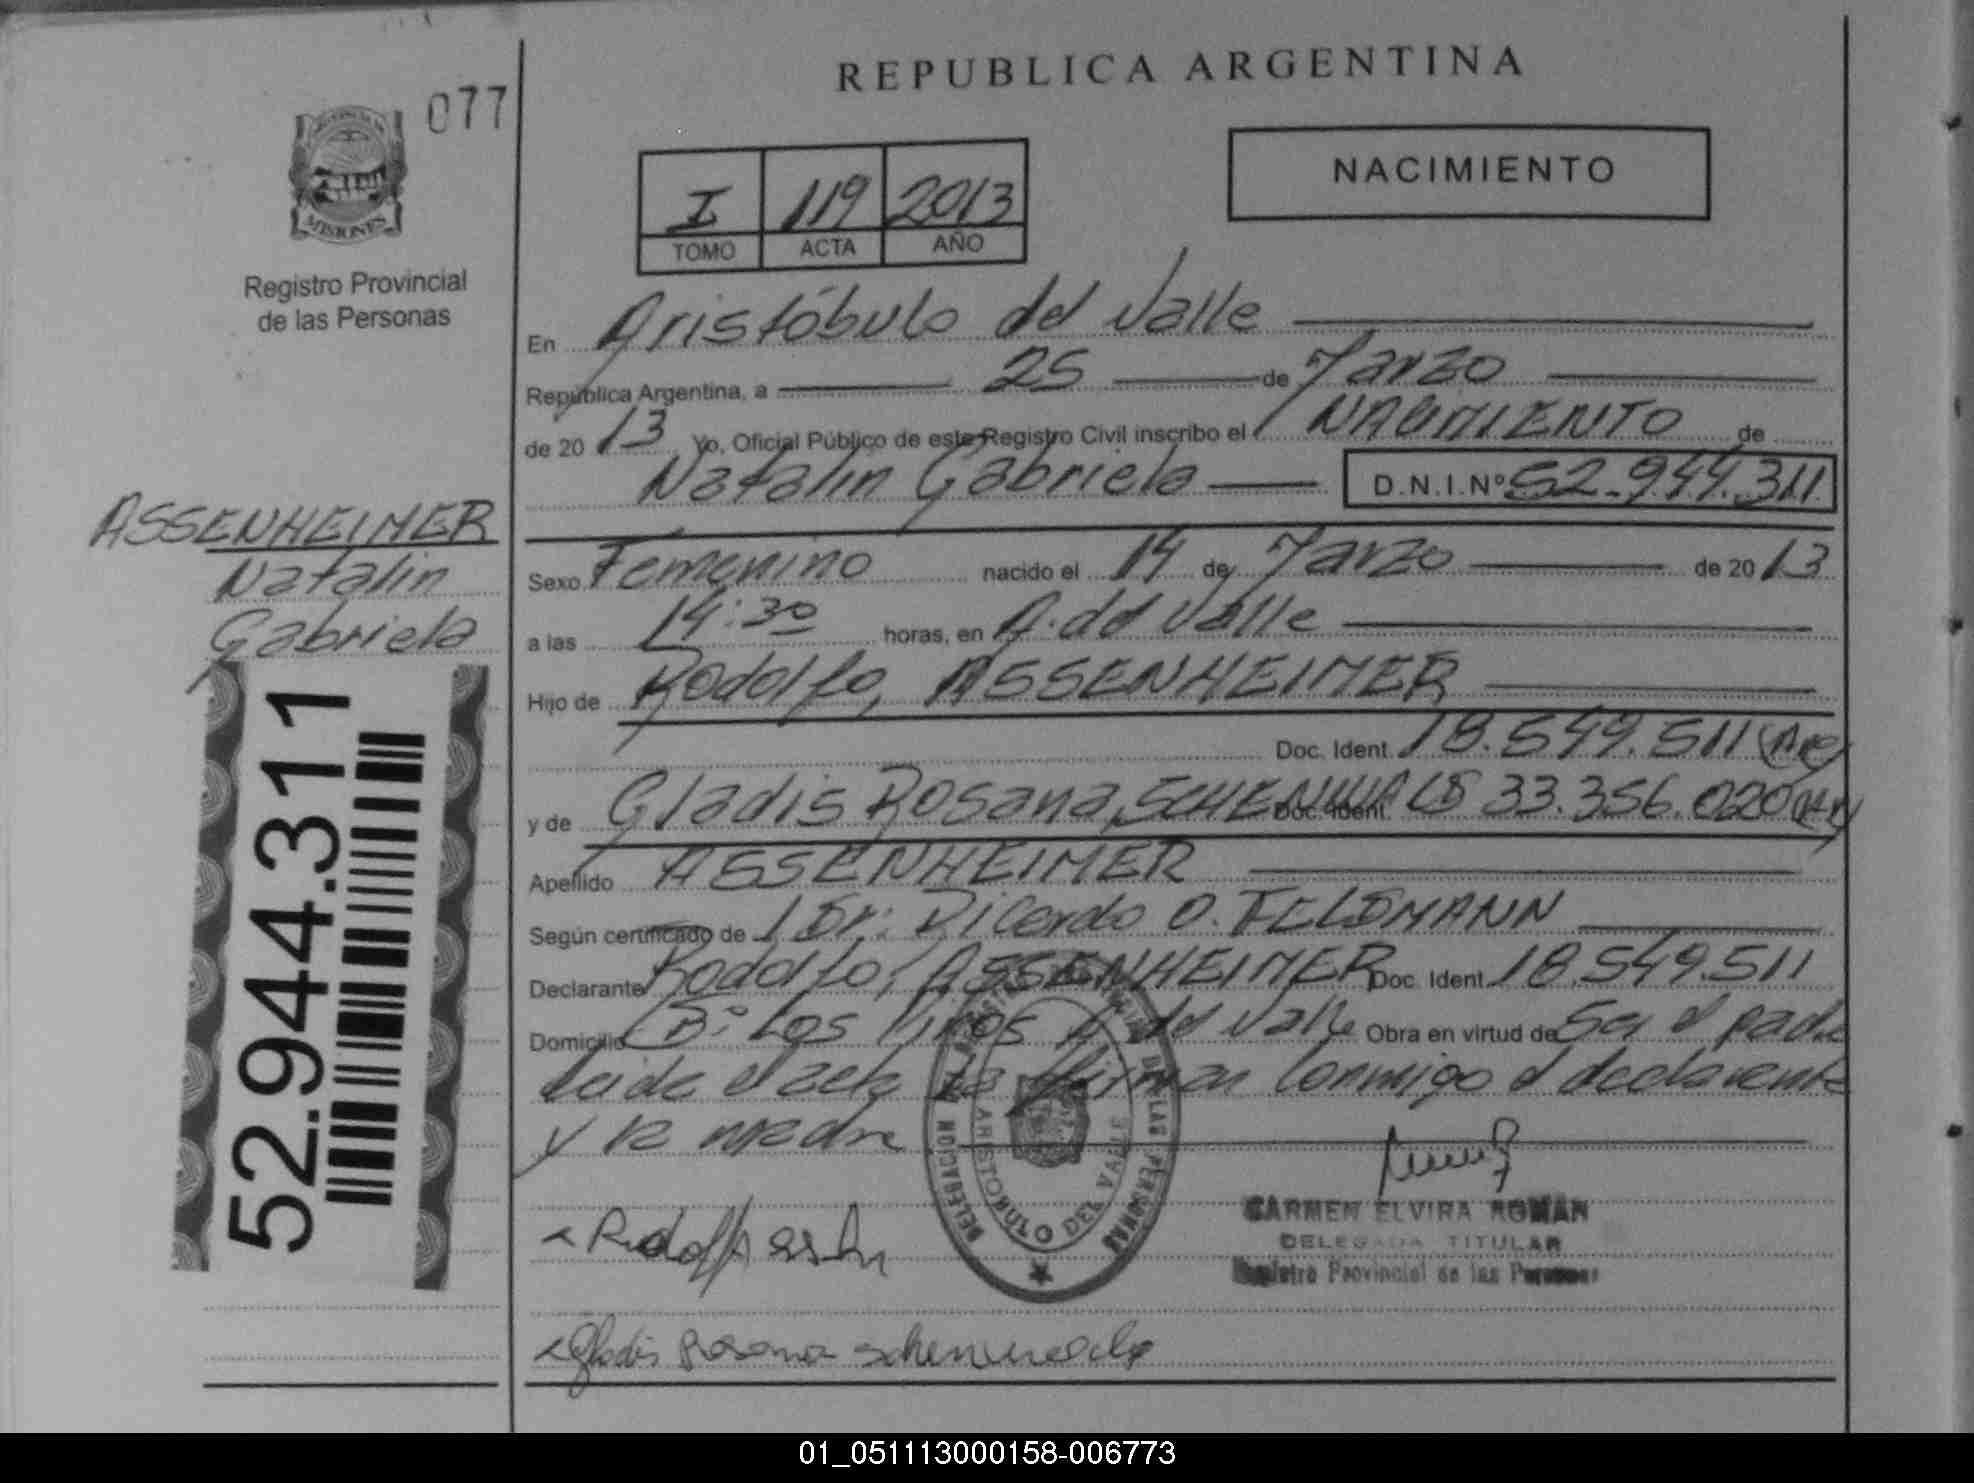 REPUBLICA ARGENTINA
077
MISIONES
Registro Provincial
de las Personas
I 119 2013
TOMO ACTA AÑO
NACIMIENTO
En Aristóbulo del Valle
República Argentina, a 25 de Marzo
de 20 13 Yo, Oficial Público de este Registro Civil inscribo el NACIMIENTO de
Natalin Gabriela D.N.I.Nº 52.944.311
ASSENHEIMER
Natalin
Gabriela
52.944.311
Sexo Femenino nacido el 14 de Marzo de 20 13
a las 14:30 horas, en A. del Valle
Hijo de Rodolfo, ASSENHEIMER
Doc. Ident. 18.549.511 (Arg)
y de Gladis Rosana, Doc. Ident. 33.356.020
Apellido ASSENHEIMER
Según certificado de Dr: Ricardo O. FELDMANN
Declarante Rodolfo, ASSENHEIMER Doc. Ident. 18.549.511
Domicilio Bº Los Pinos A. del Valle Obra en virtud de Ser el padre
Leida el acta la firman conmigo el declarante
y la madre
DELEGACION DE LAS PERSONAS
ARISTOBULO DEL VALLE
CARMEN ELVIRA ROMAN
DELEGADA TITULAR
Registro Provincial de las Personas
Gladis Rosana
01_051113000158-006773